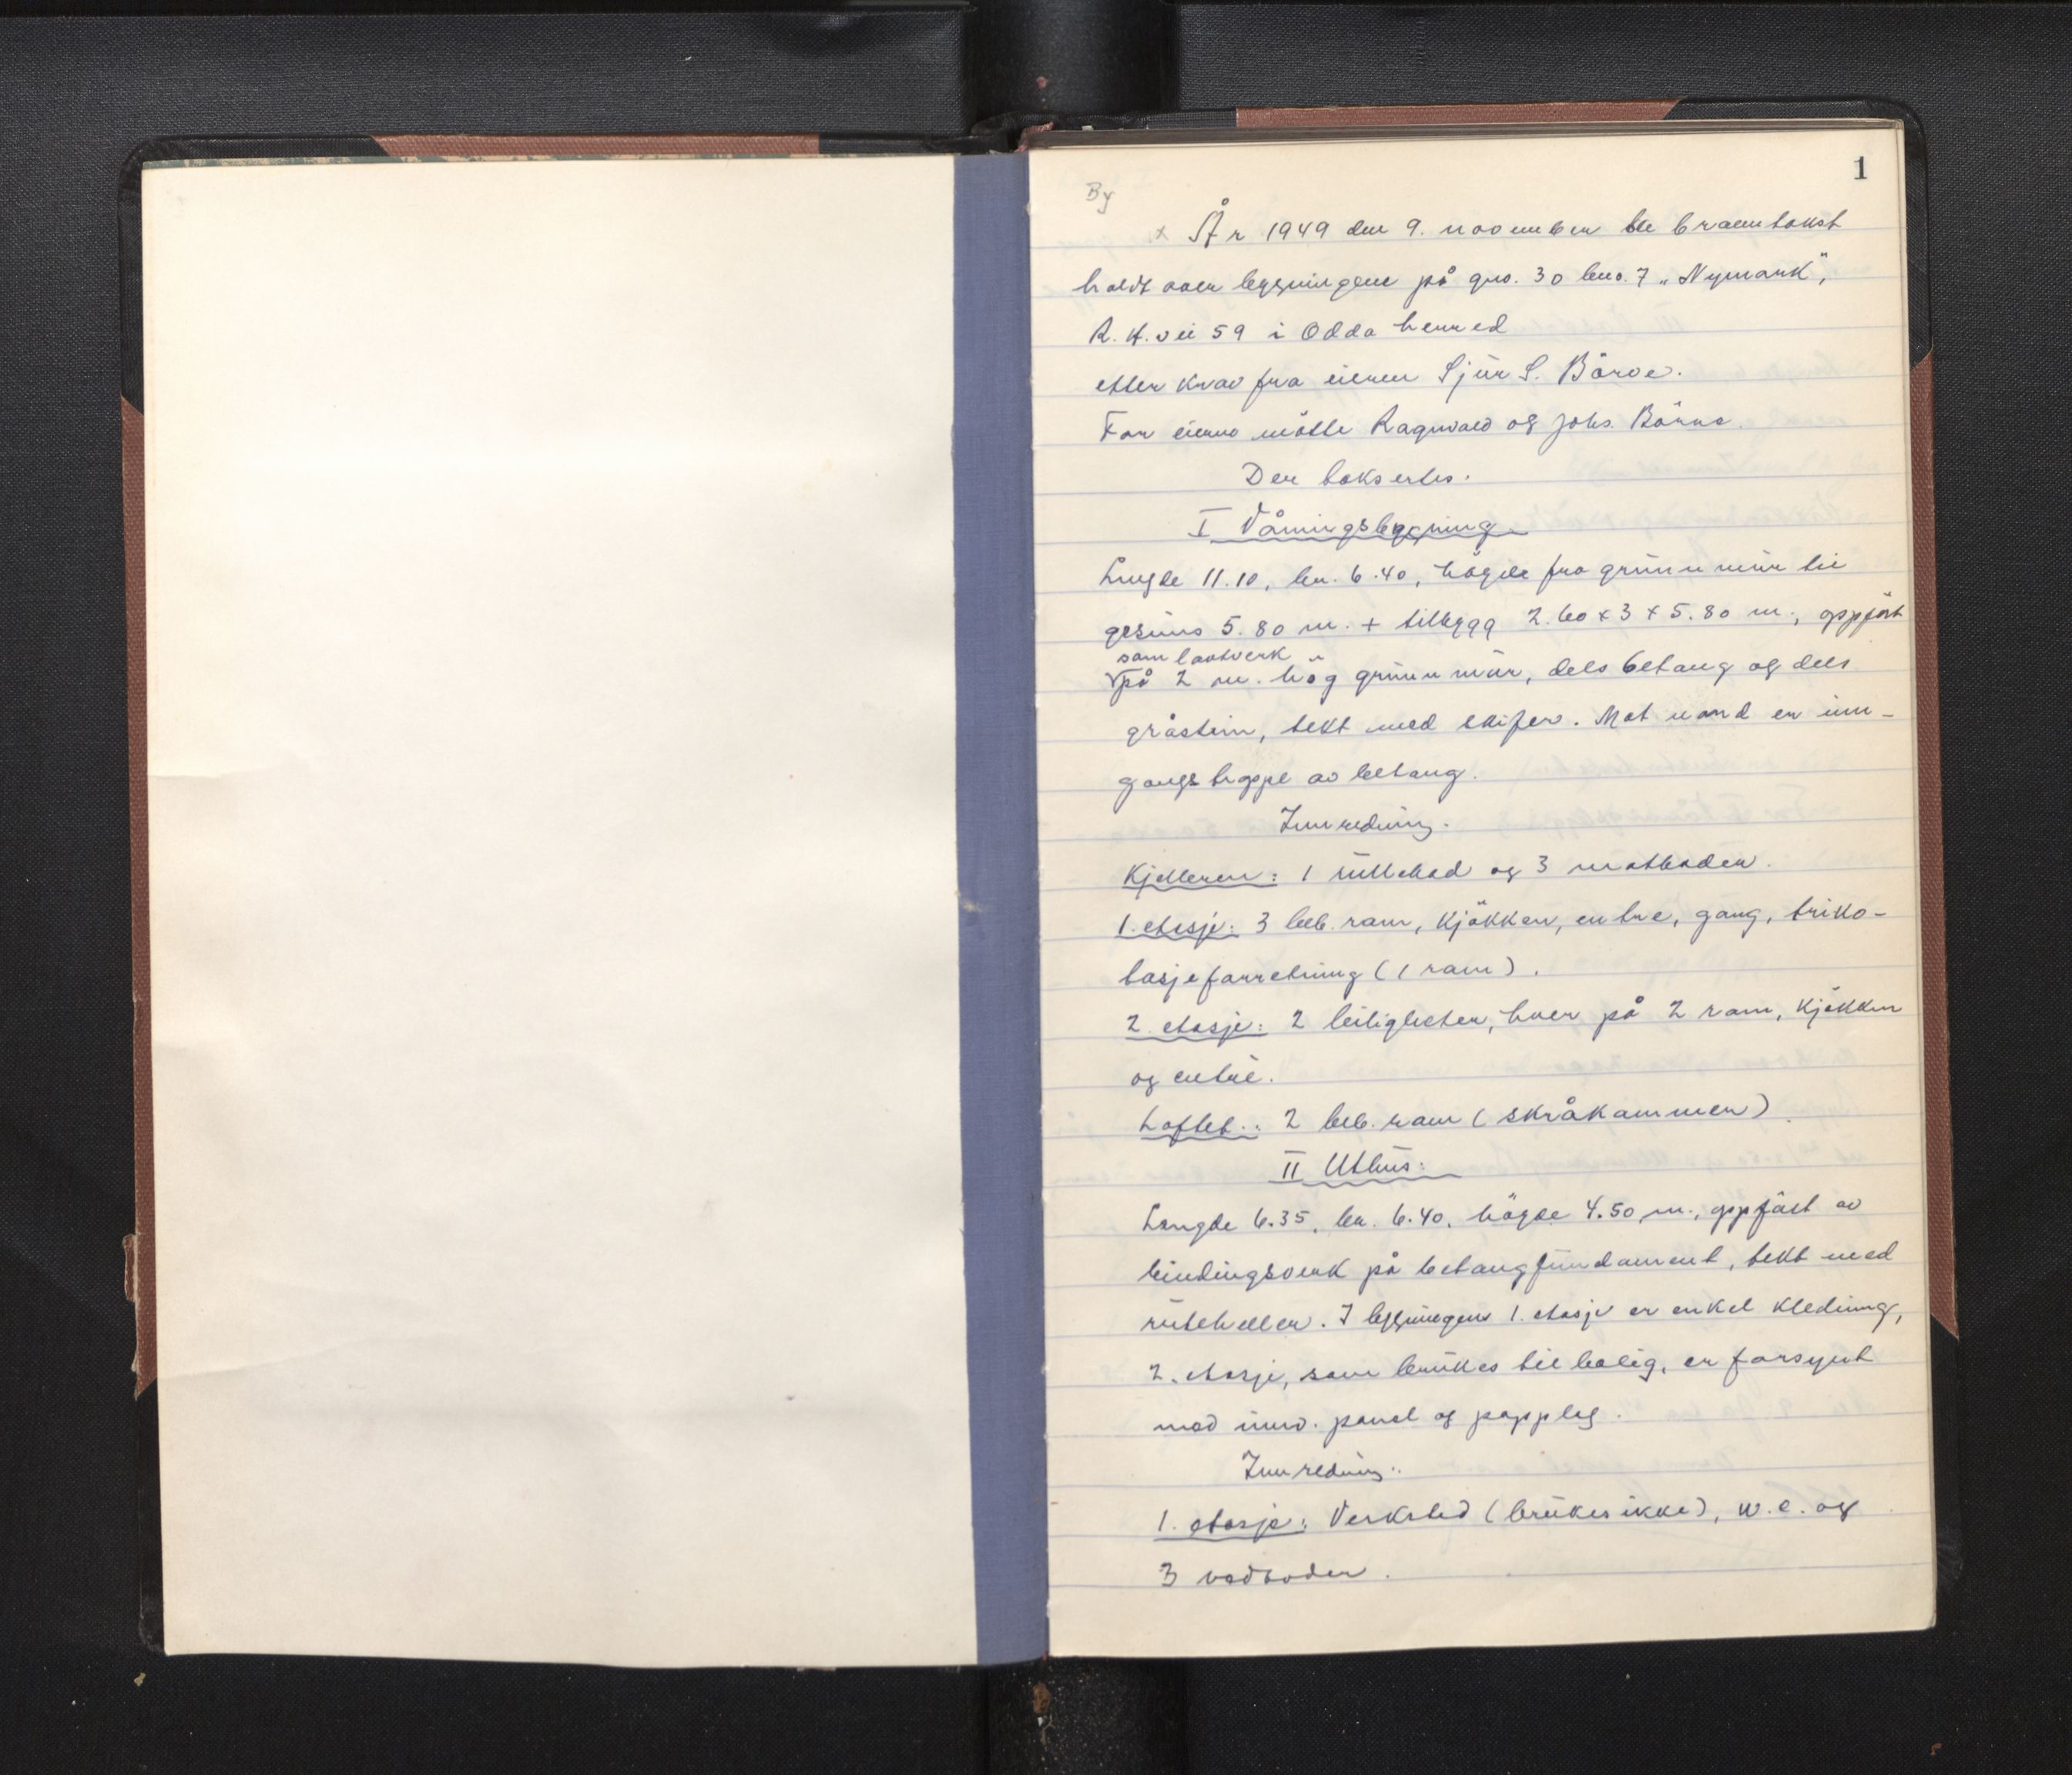 1
By
x År 1949 den 9. november ble branntakst
holdt over bygningene på gno. 30 bno. 7 „Nymark",
R. H. vei 59 i Odda herred
etter krav fra eieren Sjur S. Börve.
For eieren mötte Ragnvald og Johs. Börve.
Der taksertes.
I Våningsbygning
Lengde 11.10, br. 6.40, högde fra grunnmur til
gesims 5.80 m. + tilbygg 2.60 x 3 x 5.80 m., oppfört
som laftverk
på 2 m. hög grunnmur, dels betong og dels
gråstein, tekt med skifer. Mot nord er inn-
gangstrappe av betong.
Innredning.
Kjelleren: 1 rullebod og 3 matboder.
1. etasje: 3 beb. rom, kjökken, entre, gang, triko-
tasjeforretning (1 rom).
2. etasje: 2 leiligheter, hver på 2 rom, kjökken
og entré.
Loftet: 2 beb. rom (skråkammer)
II Uthus:
Lengde 6.35, br. 6.40, högde 4.50 m., oppfört av
bindingsverk på betongfundament, tekt med
ruteheller. I bygningens 1. etasje er enkel kledning,
2. etasje, som brukes til bolig, er forsynt
med innv. panel og papplag.
Innredning:
1. etasje: Verksted (brukes ikke), w.c. og
3 vedboder.